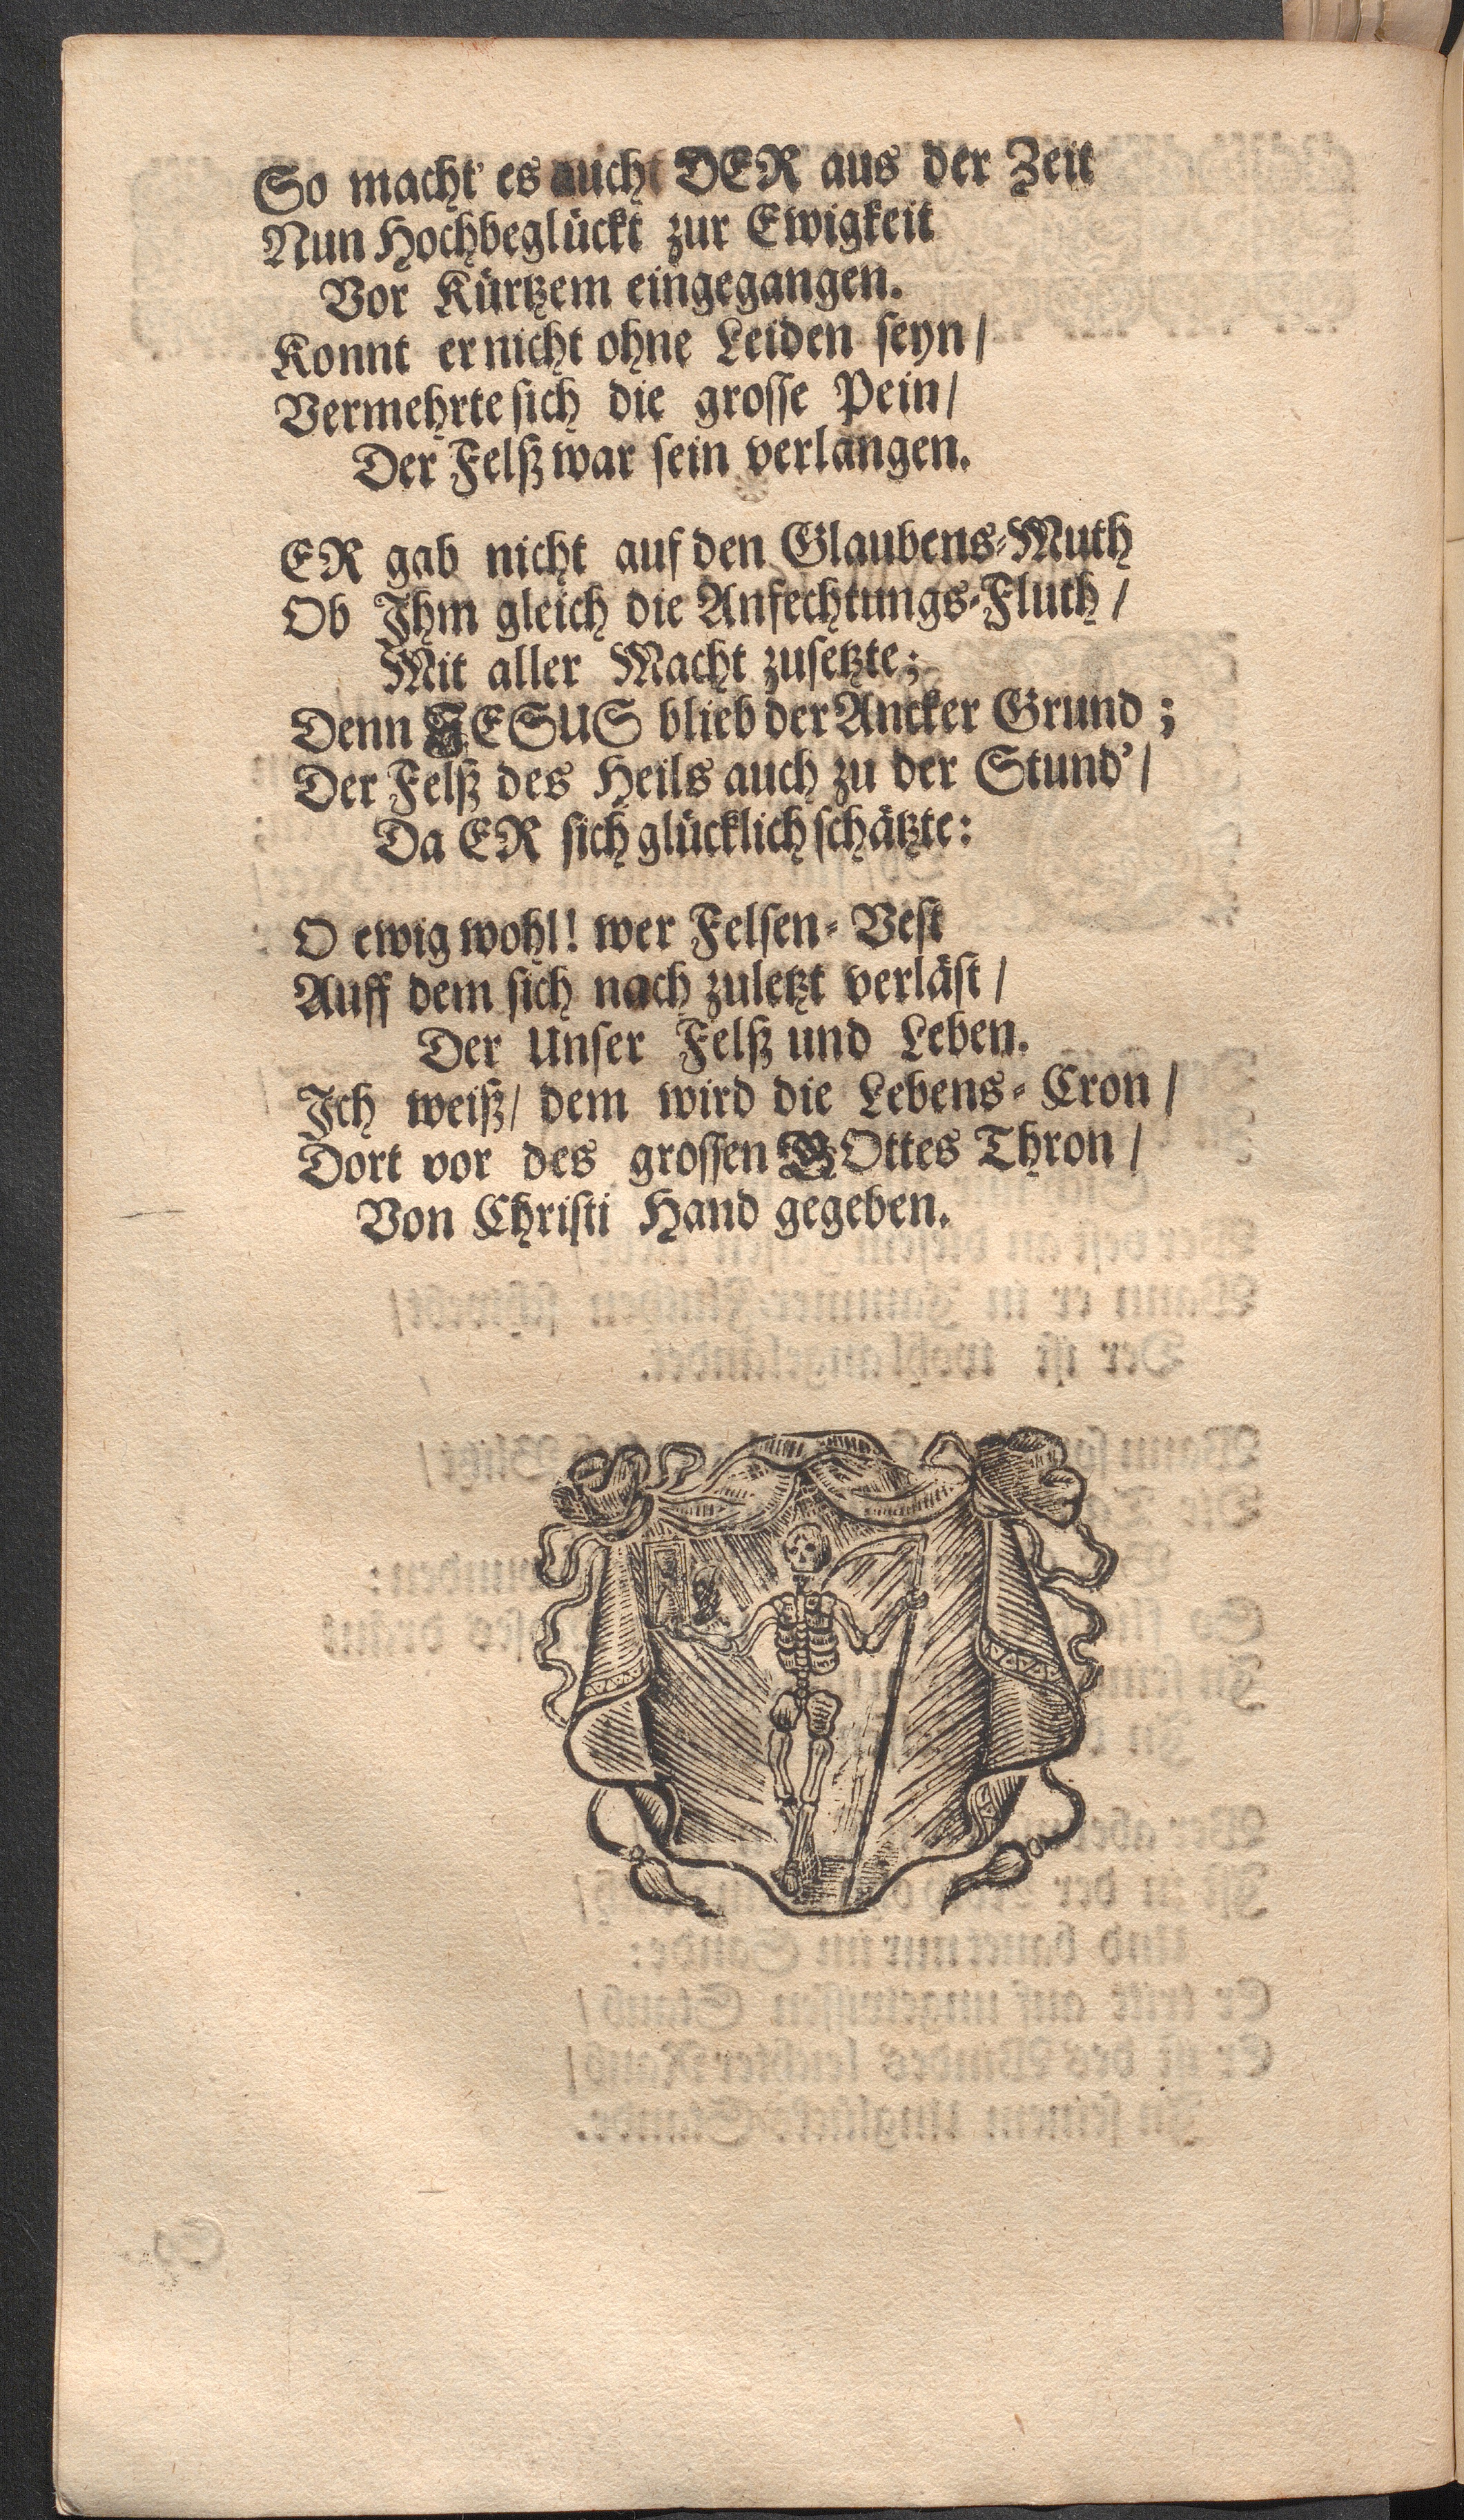 So macht' es auch DER aus der Zeit
Nun Hochbeglückt zur Ewigkeit
Vor Kürtzem eingegangen.
Konnt er nicht ohne Leiden seyn/
Vermehrte sich die grosse Pein/
Der Felß war sein verlangen.
ER gab nicht auf den Glaubens-Muth
Ob Ihm gleich die Anfechtungs-Fluth/
Mit aller Macht zusetzte;
Denn JESUS blieb der Ancker Grund;
Der Felß des Heils auch zu der Stund'/
Da ER sich glücklich schätzte:
O ewig wohl! wer Felsen-Vest
Auff dem sich nach zuletzt verläst/
Der Unser Felß und Leben.
Ich weiß/ dem wird die Lebens-Cron/
Dort vor des grossen GOttes Thron/
Von Christi Hand gegeben.